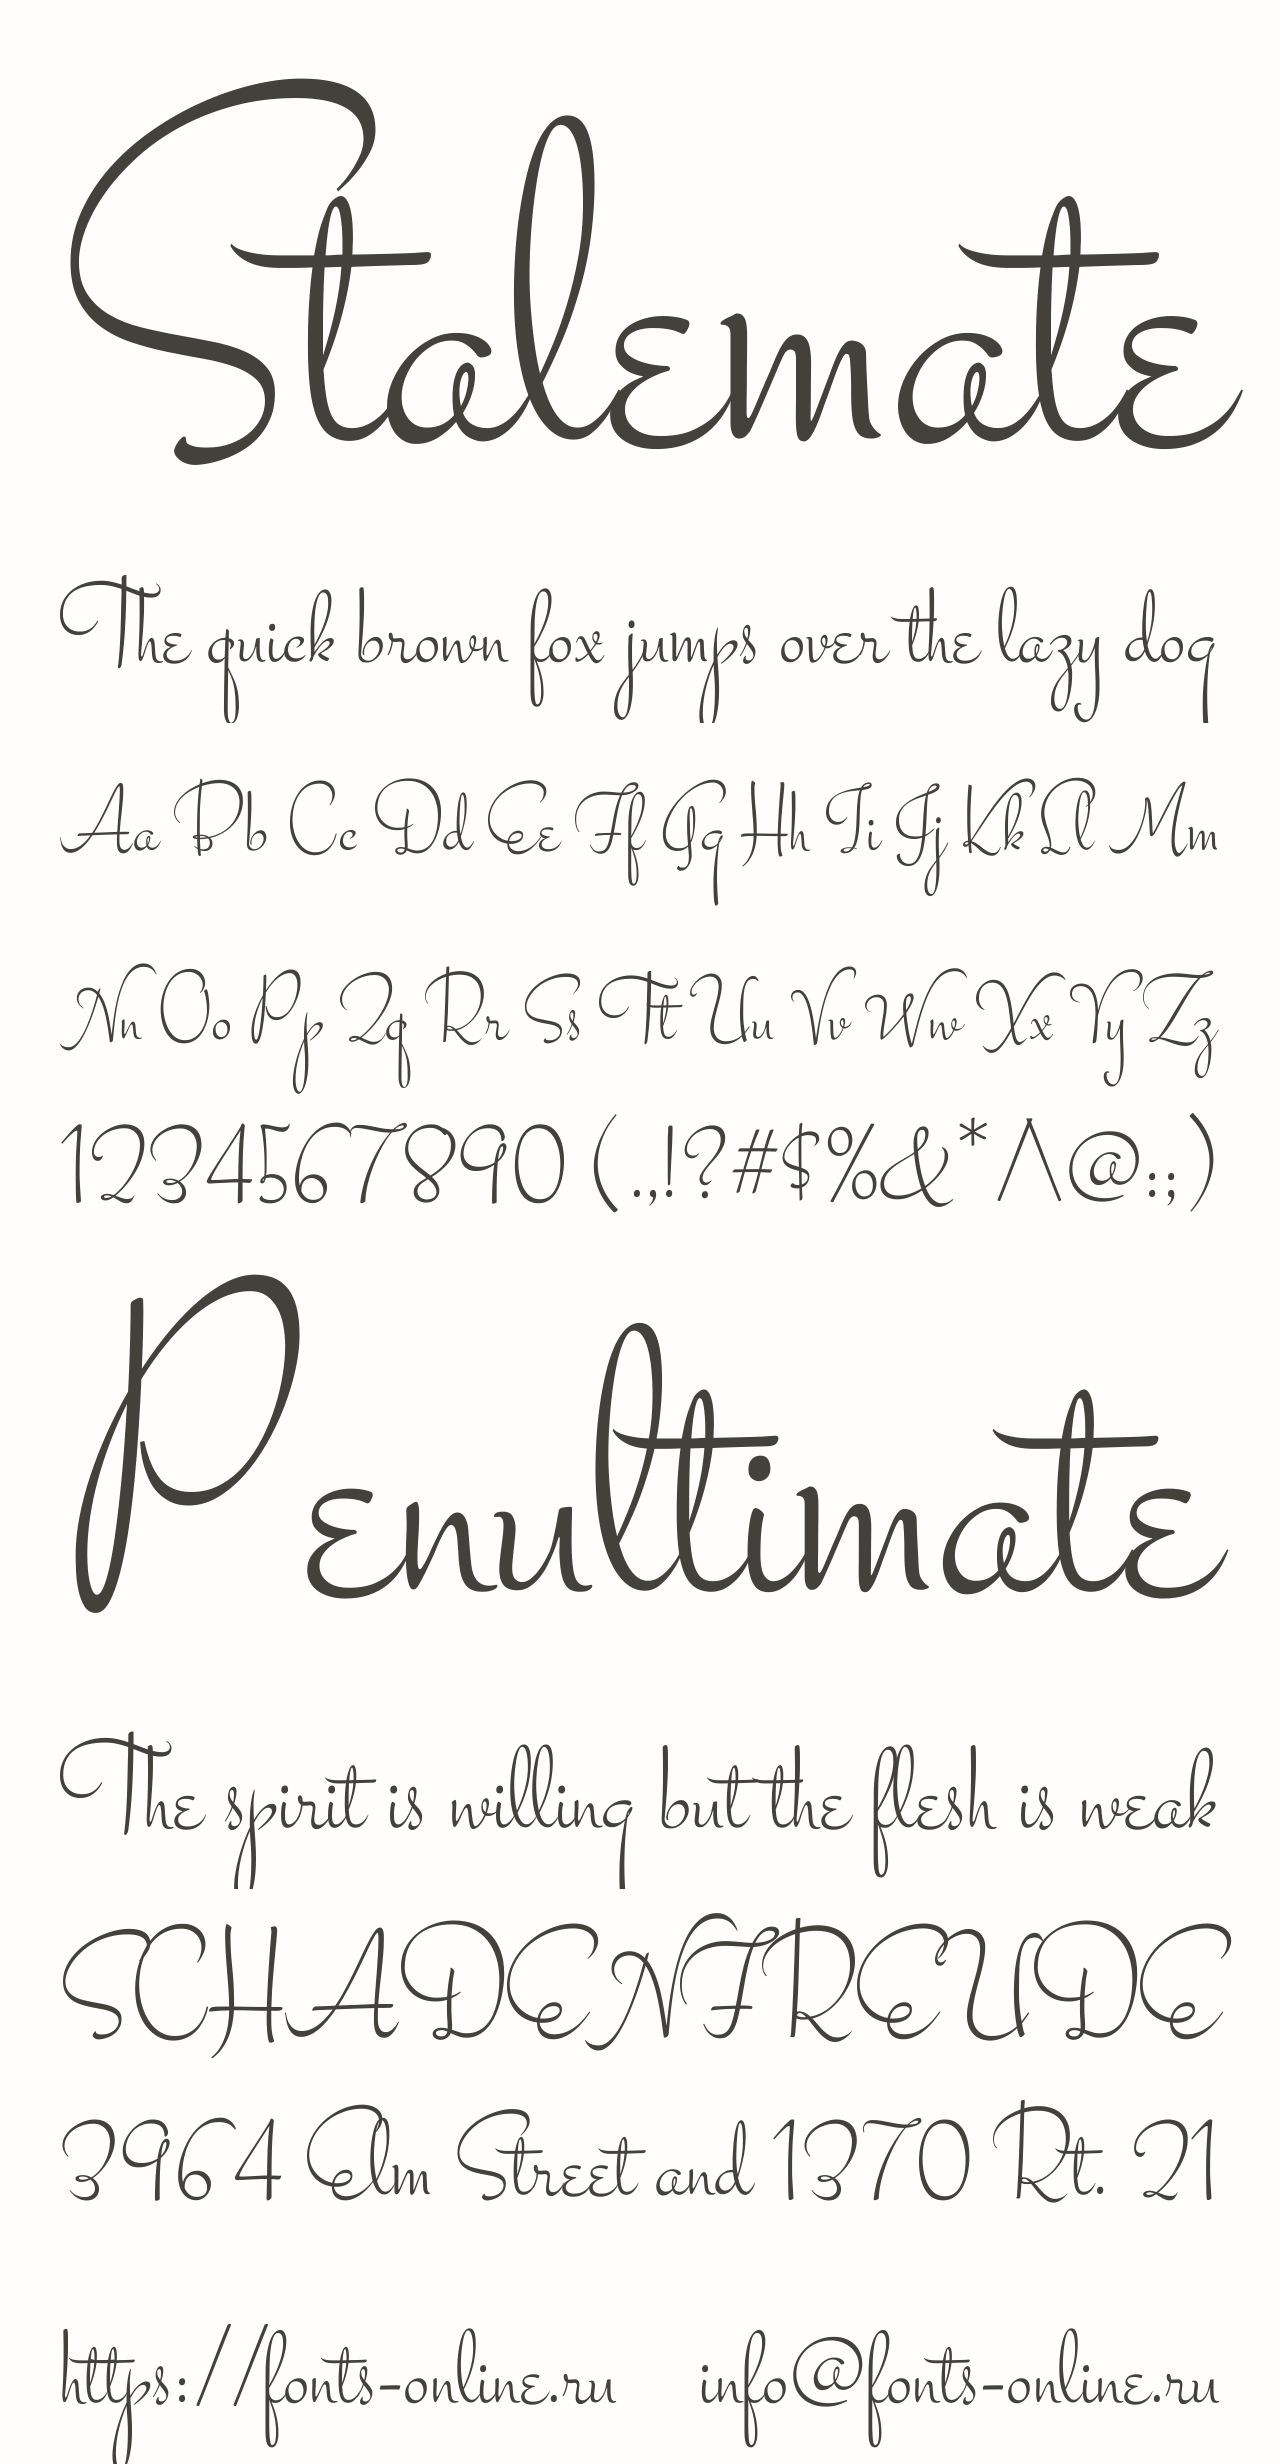 Stalemate
The quick brown fox jumps over the lazy dog
Aa Bb Cc Dd Ee Ff Gg Hh Ii Jj Kk Ll Mm
Nn Oo Pp Qq Rr Ss Tt Uu Vv Ww Xx Yy Zz
1234567890 (.,!?#$%&*/\@:;)
Penultimate
The spirit is willing but the flesh is weak
SCHADENFREUDE
3964 Elm Street and 1370 Rt. 21
https://fonts-online.ru info@fonts-online.ru